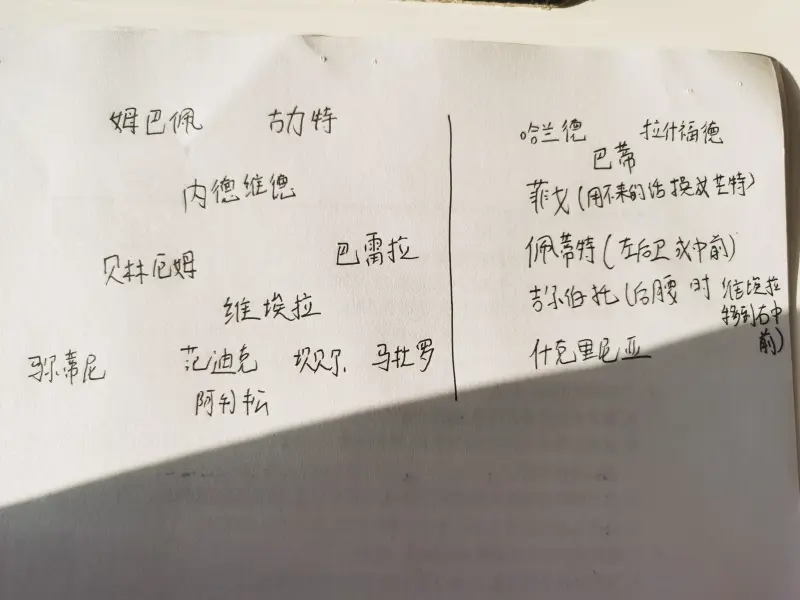 姆巴佩 古力特
内德维德
贝林厄姆 巴雷拉
维埃拉
马尔蒂尼 范迪克 坎贝尔 马杜罗
阿利松
哈兰德 拉什福德
巴蒂
菲戈(用不来的话换成芒特)
佩蒂特(左后卫或中前)
吉尔伯托(后腰 时 维埃拉
移到右中
前)
什克里尼亚